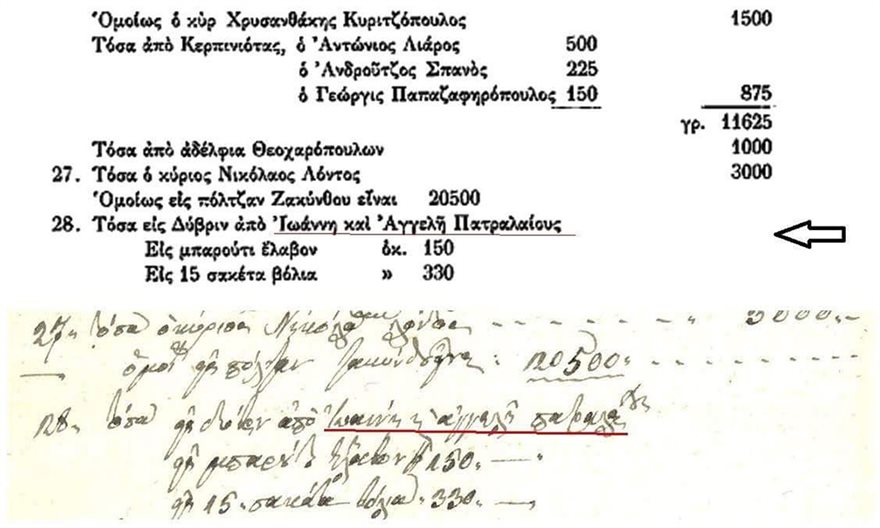 Ὁμοίως ὁ κὺρ Χρυσανθάκης Κυριτζόπουλος 1500
Τόσα ἀπὸ Κερπινιότας, ὁ Ἀντώνιος Λιάρος 500
ὁ Ἀνδροῦτζος Σπανὸς 225
ὁ Γεώργις Παπαζαφηρόπουλος 150 875
γρ. 11625
Τόσα ἀπὸ ἀδέλφια Θεοχαρόπουλων 1000
27. Τόσα ὁ κύριος Νικόλαος Λόντος 3000
Ὁμοίως εἰς πόλτζαν Ζακύνθου εἶναι 20500
28. Τόσα εἰς Δύβριν ἀπὸ Ἰωάννη καὶ Ἀγγελῆ Πατραλαίους
Εἰς μπαρούτι ἔλαβον ὀκ. 150
Εἰς 15 σακέτα βόλια » 330
27 τόσα ὁ κύριος 3000
20500
28 τόσα ἀπὸ
150
15 βόλια 330